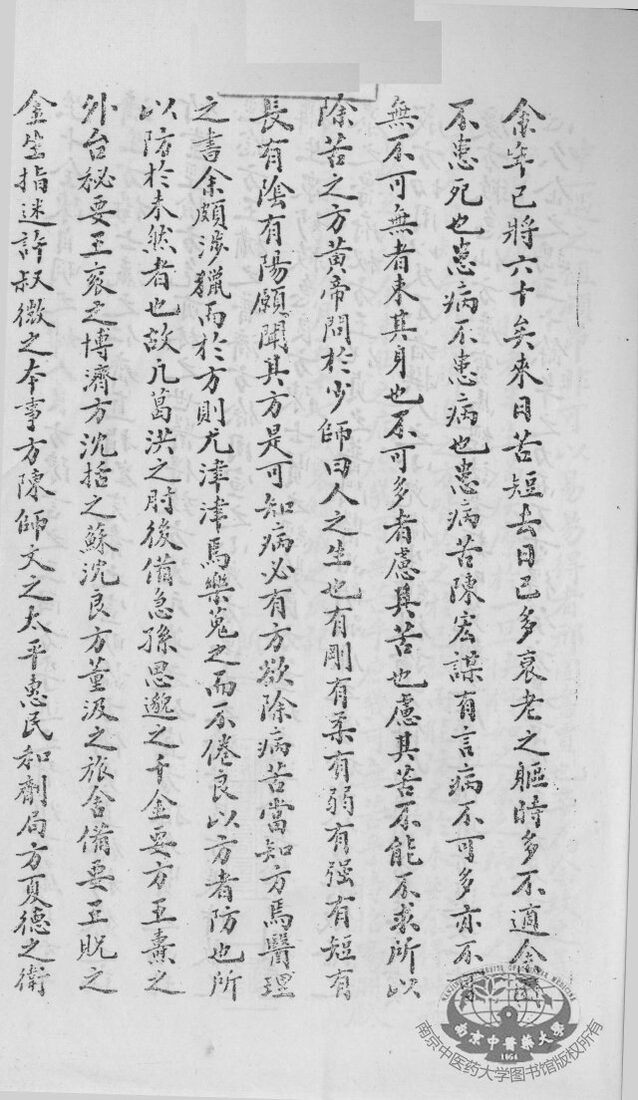 余年已將六十矣來日苦短去日已多衰老之軀時多不適余
不患死也患病不患病也患病苦陳宏謀有言病不可多亦不可
無不可無者束其身也不可多者慮其苦也慮其苦不能不求所以
除苦之方黃帝問於少師曰人之生也有剛有柔有弱有强有短有
長有陰有陽願聞其方是可知病必有方欲除病苦當知方焉醫理
之書余頗涉獵而於方則尤津津焉樂蒐之而不倦良以方者防也所
以防於未然者也故凡葛洪之肘後備急孫思邈之千金要方王燾之
外台祕要王袞之博濟方沈括之蘇沈良方董汲之旅舍備要王貺之
全生指迷許叔微之本事方陳師文之太平惠民和劑局方夏德之衛
南京中醫藥大學
1954
南京中医药大学图书馆版权所有